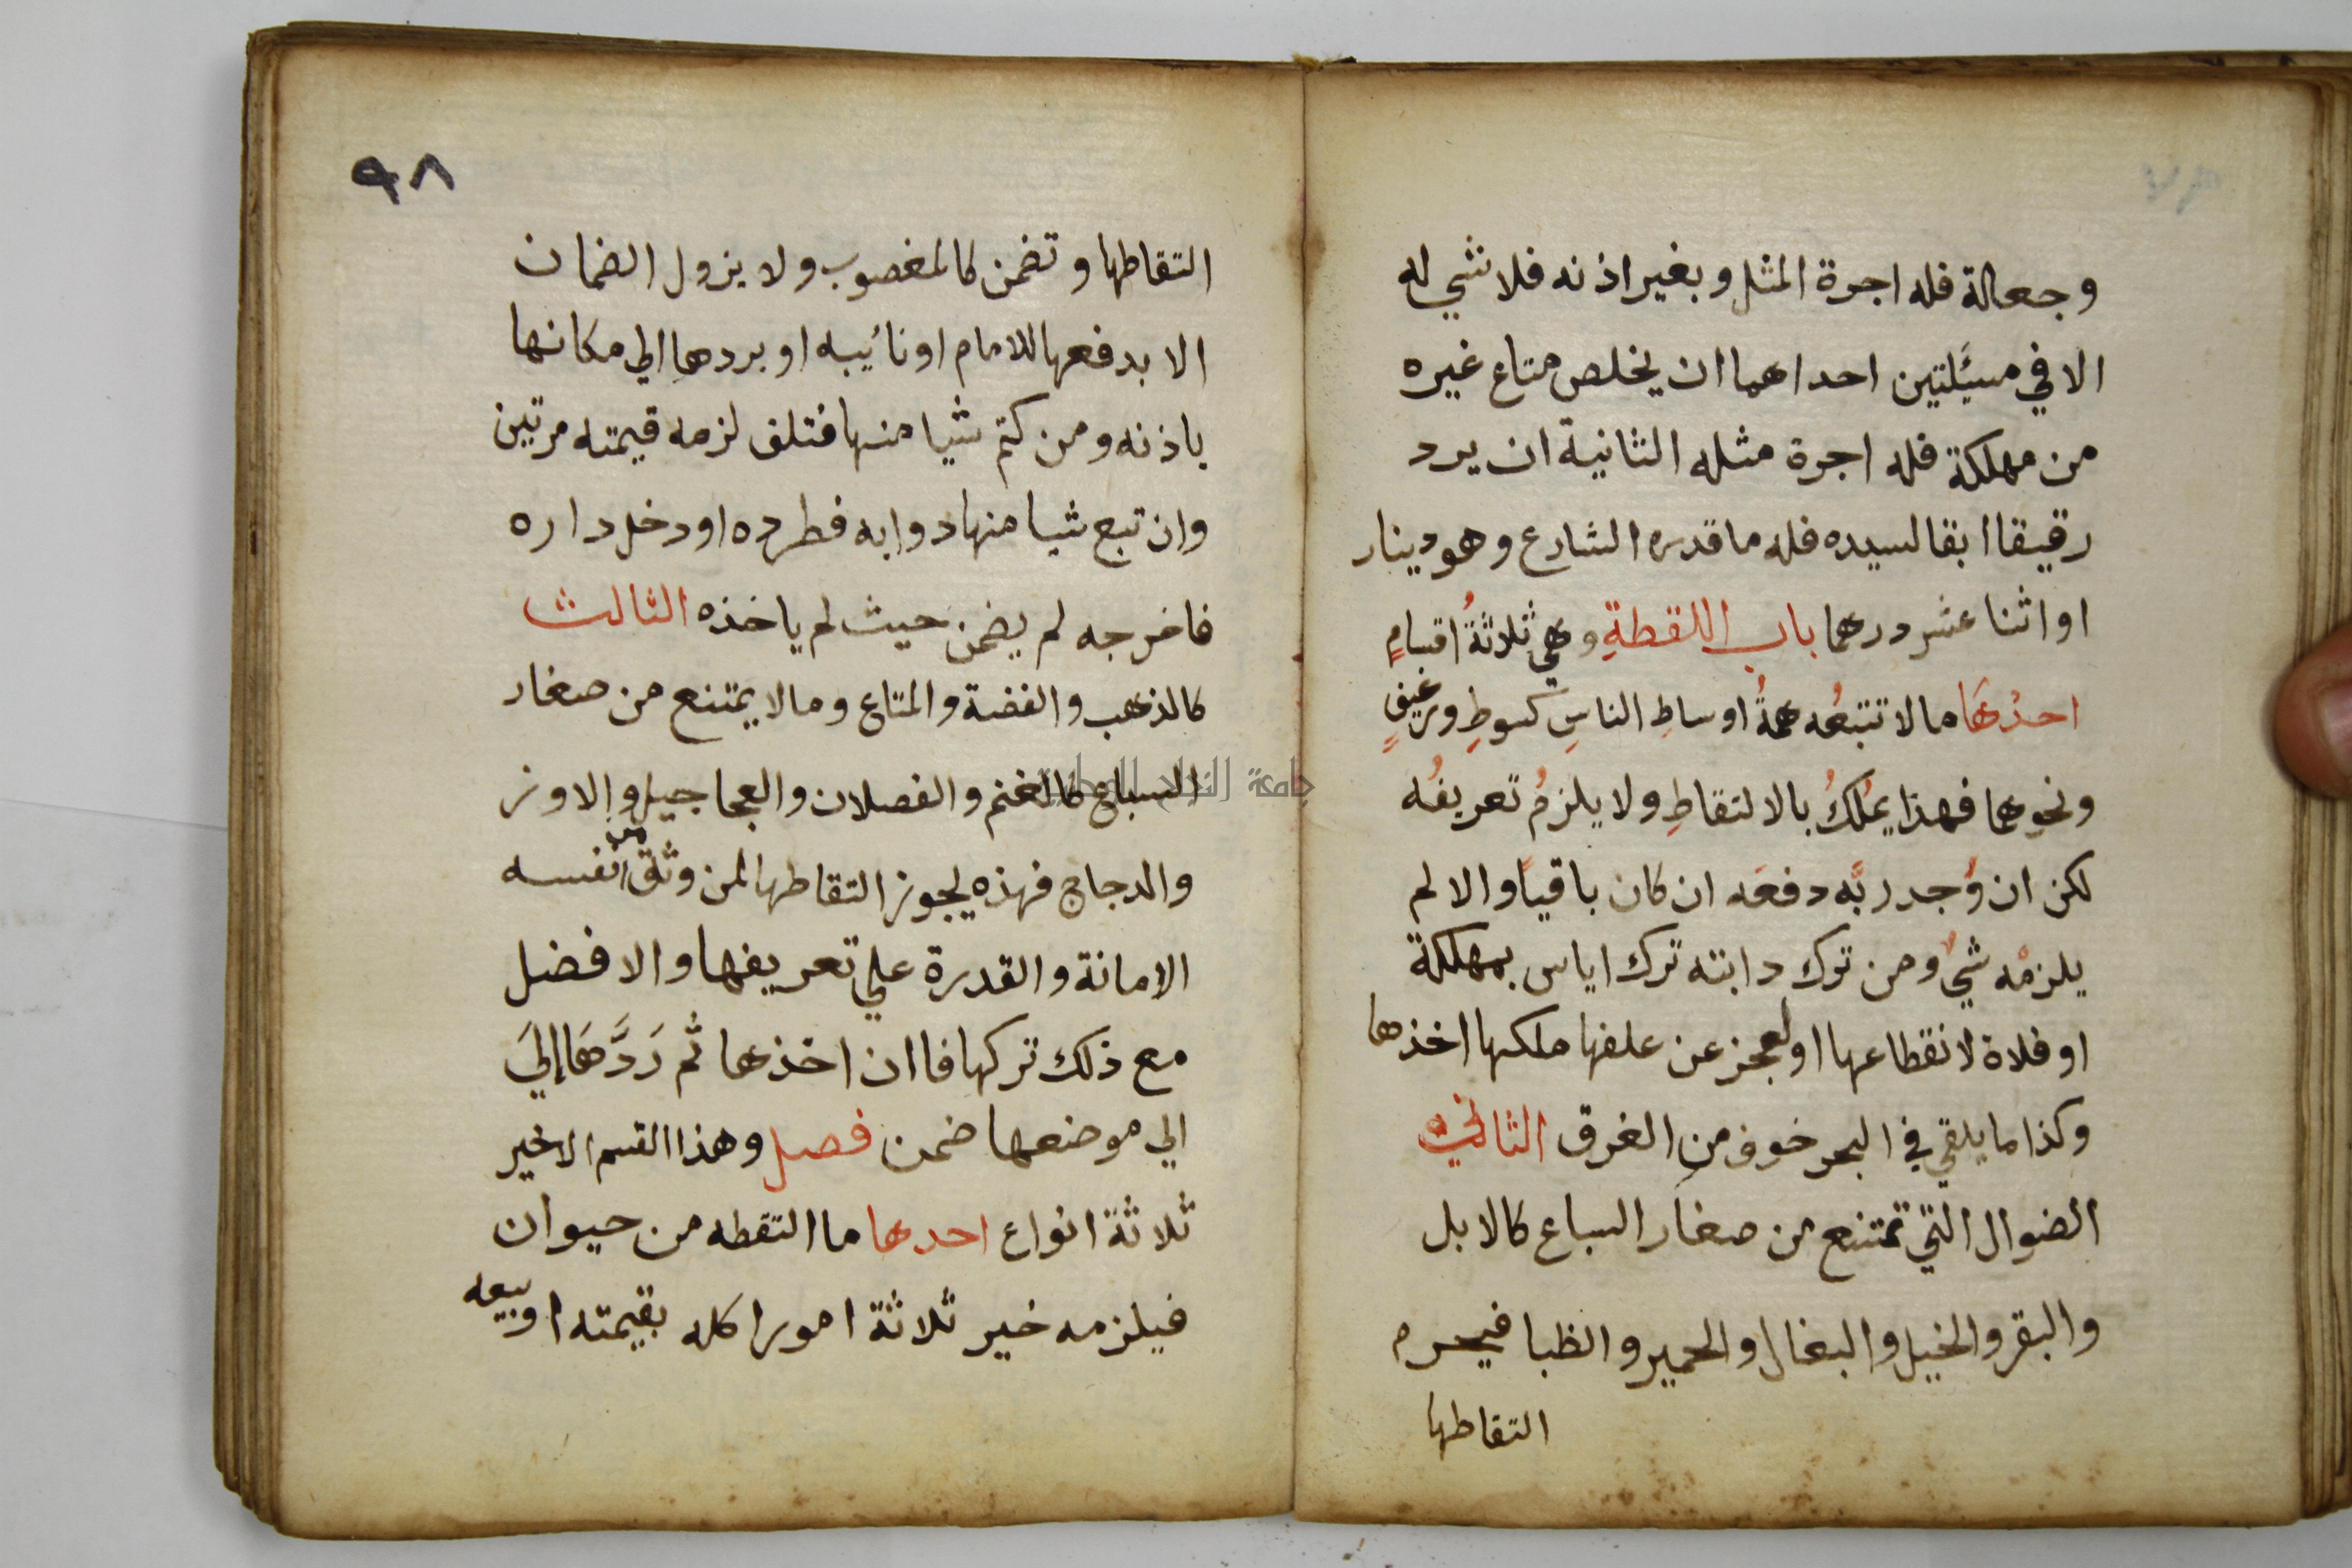 وجعالة فله اجرة المثل وبغير اذنه فلا شي له
الا في مسئلتين احداهما ان يخلص متاع غيره
من مهلكة فله اجرة مثله الثانية ان يرد
رقيقا ابقا لسيده فله ما قدره الشارع وهو دينار
او اثنا عشر درهما باب اللقطةِ وهي ثلاثةُ اقسامٍ
احدُهَا ما لا تتبعُه همةُ اوساطِ الناسِ كسوطٍ ورغيفٍ
ونحوِهما فهذا يُملكُ بالالتقاطِ ولا يلزمُ تعريفُه
لكن ان وُجد ربَّه دفعَه ان كان باقياً والا لم
يلزمْه شيٌ ومن ترك دابته ترك اياس بمهلكة
او فلاة لانقطاعها او لعجز عن علفها ملكها اخذها
وكذا ما يلقي في البحر خوف من الغرق الثاني
الضوال التي تمتنع من صغار السباع كالابل
والبقر والخيل والبغال والحمير والظبا فيحرم
التقاطها
٩٨
التقاطها وتضمن كالمغصوب ولا يزول الضمان
الا بدفعها للامام او نائيبه او بردها الي مكانها
باذنه ومن كتم شيا منها فتلف لزمه قيمته مرتين
وان تبع شيا منها دوابه فطرده او دخل داره
فاخرجه لم يضمن حيث لم ياخذه الثالث
كالذهب والفضة والمتاع وما لا يمتنع من صغار
السباع كالغنم والفصلان والعجاجيل والاوز
والدجاج فهذه يجوز التقاطها لمن وثق من نفسه
الامانة والقدرة علي تعريفها والافضل
مع ذلك تركها فاان اخذها ثم رَدَّهَا إليَ
الي موضعها ضمن فصل وهذا القسم الاخير
ثلاثة انواع احدها ما التقطه من حيوان
فيلزمه خير ثلاثة امور اكله بقيمته او بيعه
جامعة النجاح الوطنية